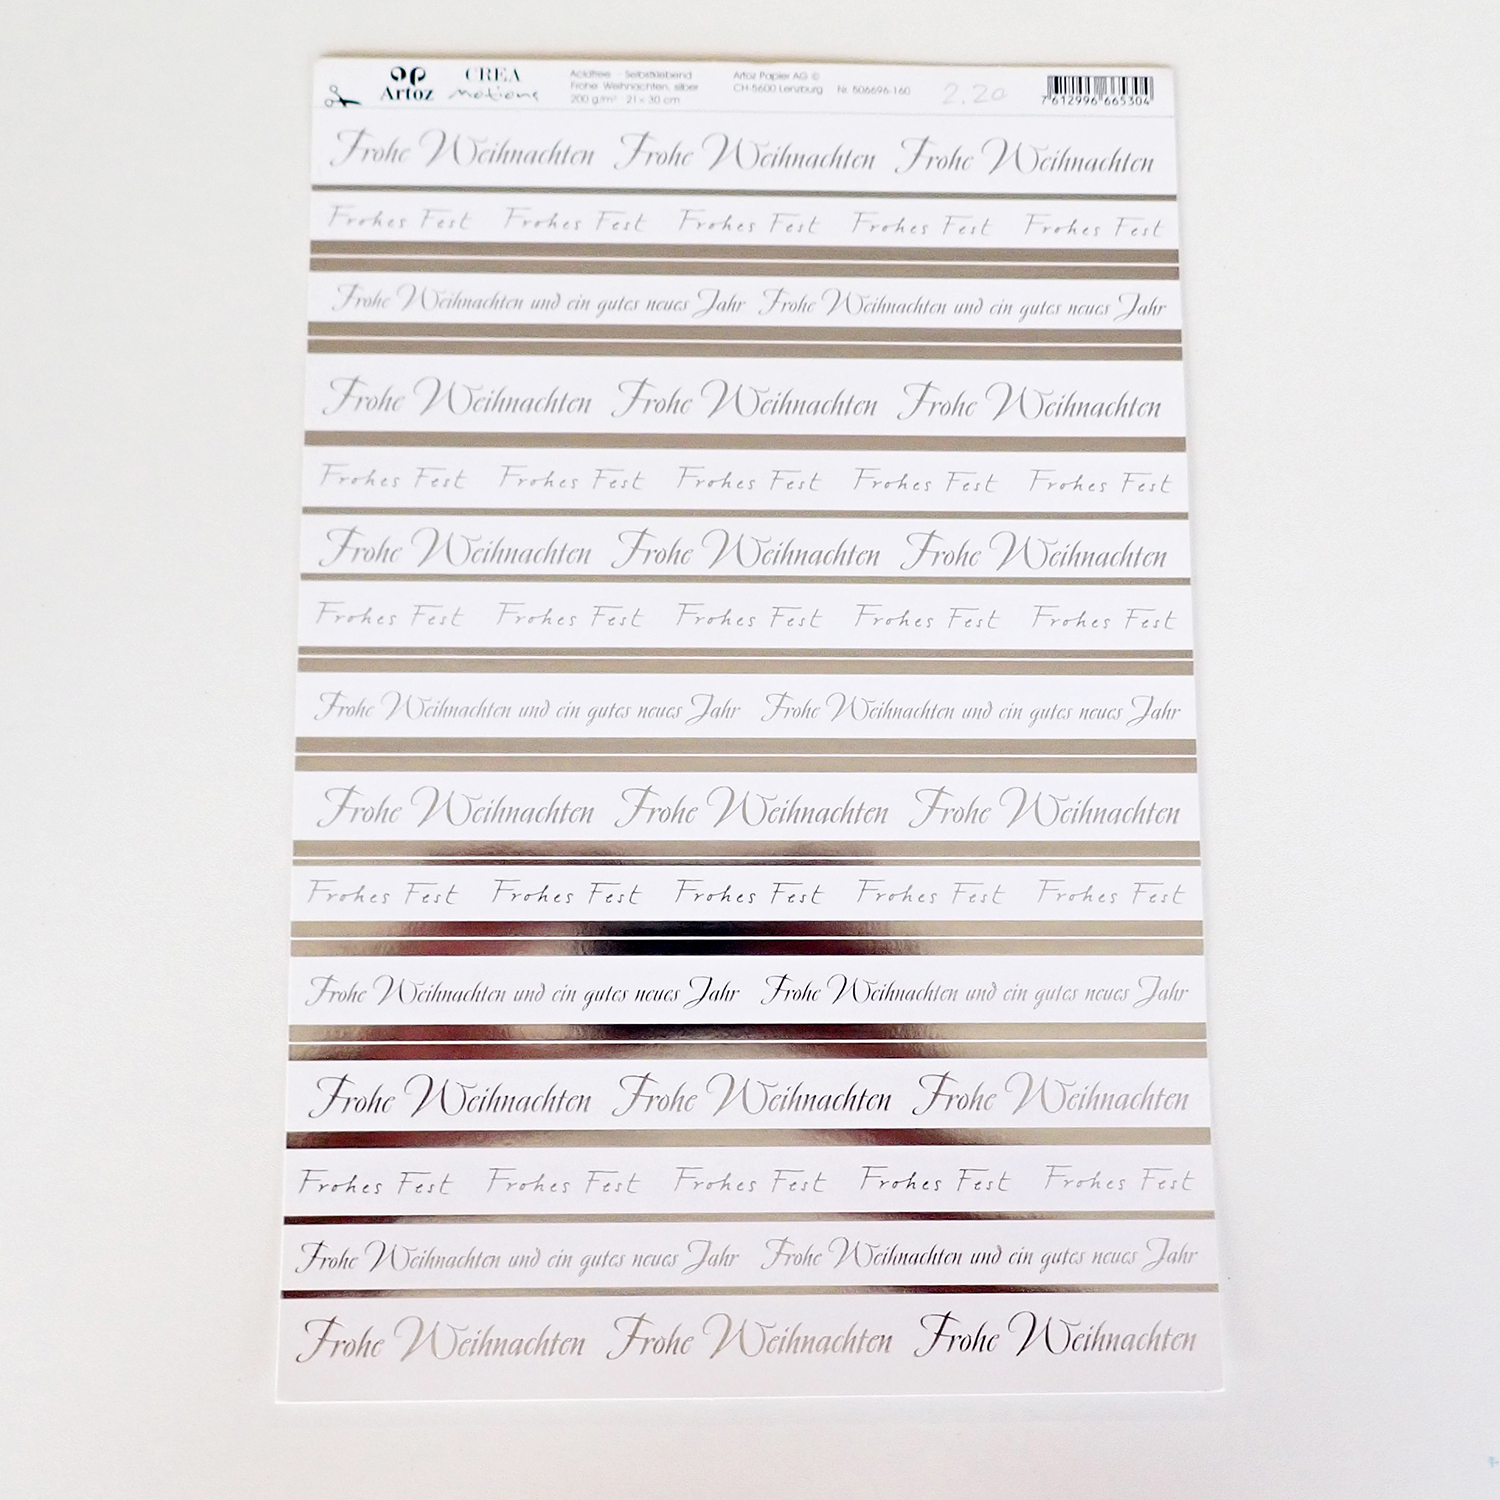 Artoz
CREA
Motions
Acidfree - Selbstklebend
Frohe Weihnachten, silber
200 g/m² 21 x 30 cm
Artoz Papier AG ©
CH-5600 Lenzburg Nr. 506696-160
2.20
7 612996 665304
Frohe Weihnachten Frohe Weihnachten Frohe Weihnachten
Frohes Fest Frohes Fest Frohes Fest Frohes Fest Frohes Fest
Frohe Weihnachten und ein gutes neues Jahr Frohe Weihnachten und ein gutes neues Jahr
Frohe Weihnachten Frohe Weihnachten Frohe Weihnachten
Frohes Fest Frohes Fest Frohes Fest Frohes Fest Frohes Fest
Frohe Weihnachten Frohe Weihnachten Frohe Weihnachten
Frohes Fest Frohes Fest Frohes Fest Frohes Fest Frohes Fest
Frohe Weihnachten und ein gutes neues Jahr Frohe Weihnachten und ein gutes neues Jahr
Frohe Weihnachten Frohe Weihnachten Frohe Weihnachten
Frohes Fest Frohes Fest Frohes Fest Frohes Fest Frohes Fest
Frohe Weihnachten und ein gutes neues Jahr Frohe Weihnachten und ein gutes neues Jahr
Frohe Weihnachten Frohe Weihnachten Frohe Weihnachten
Frohes Fest Frohes Fest Frohes Fest Frohes Fest Frohes Fest
Frohe Weihnachten und ein gutes neues Jahr Frohe Weihnachten und ein gutes neues Jahr
Frohe Weihnachten Frohe Weihnachten Frohe Weihnachten